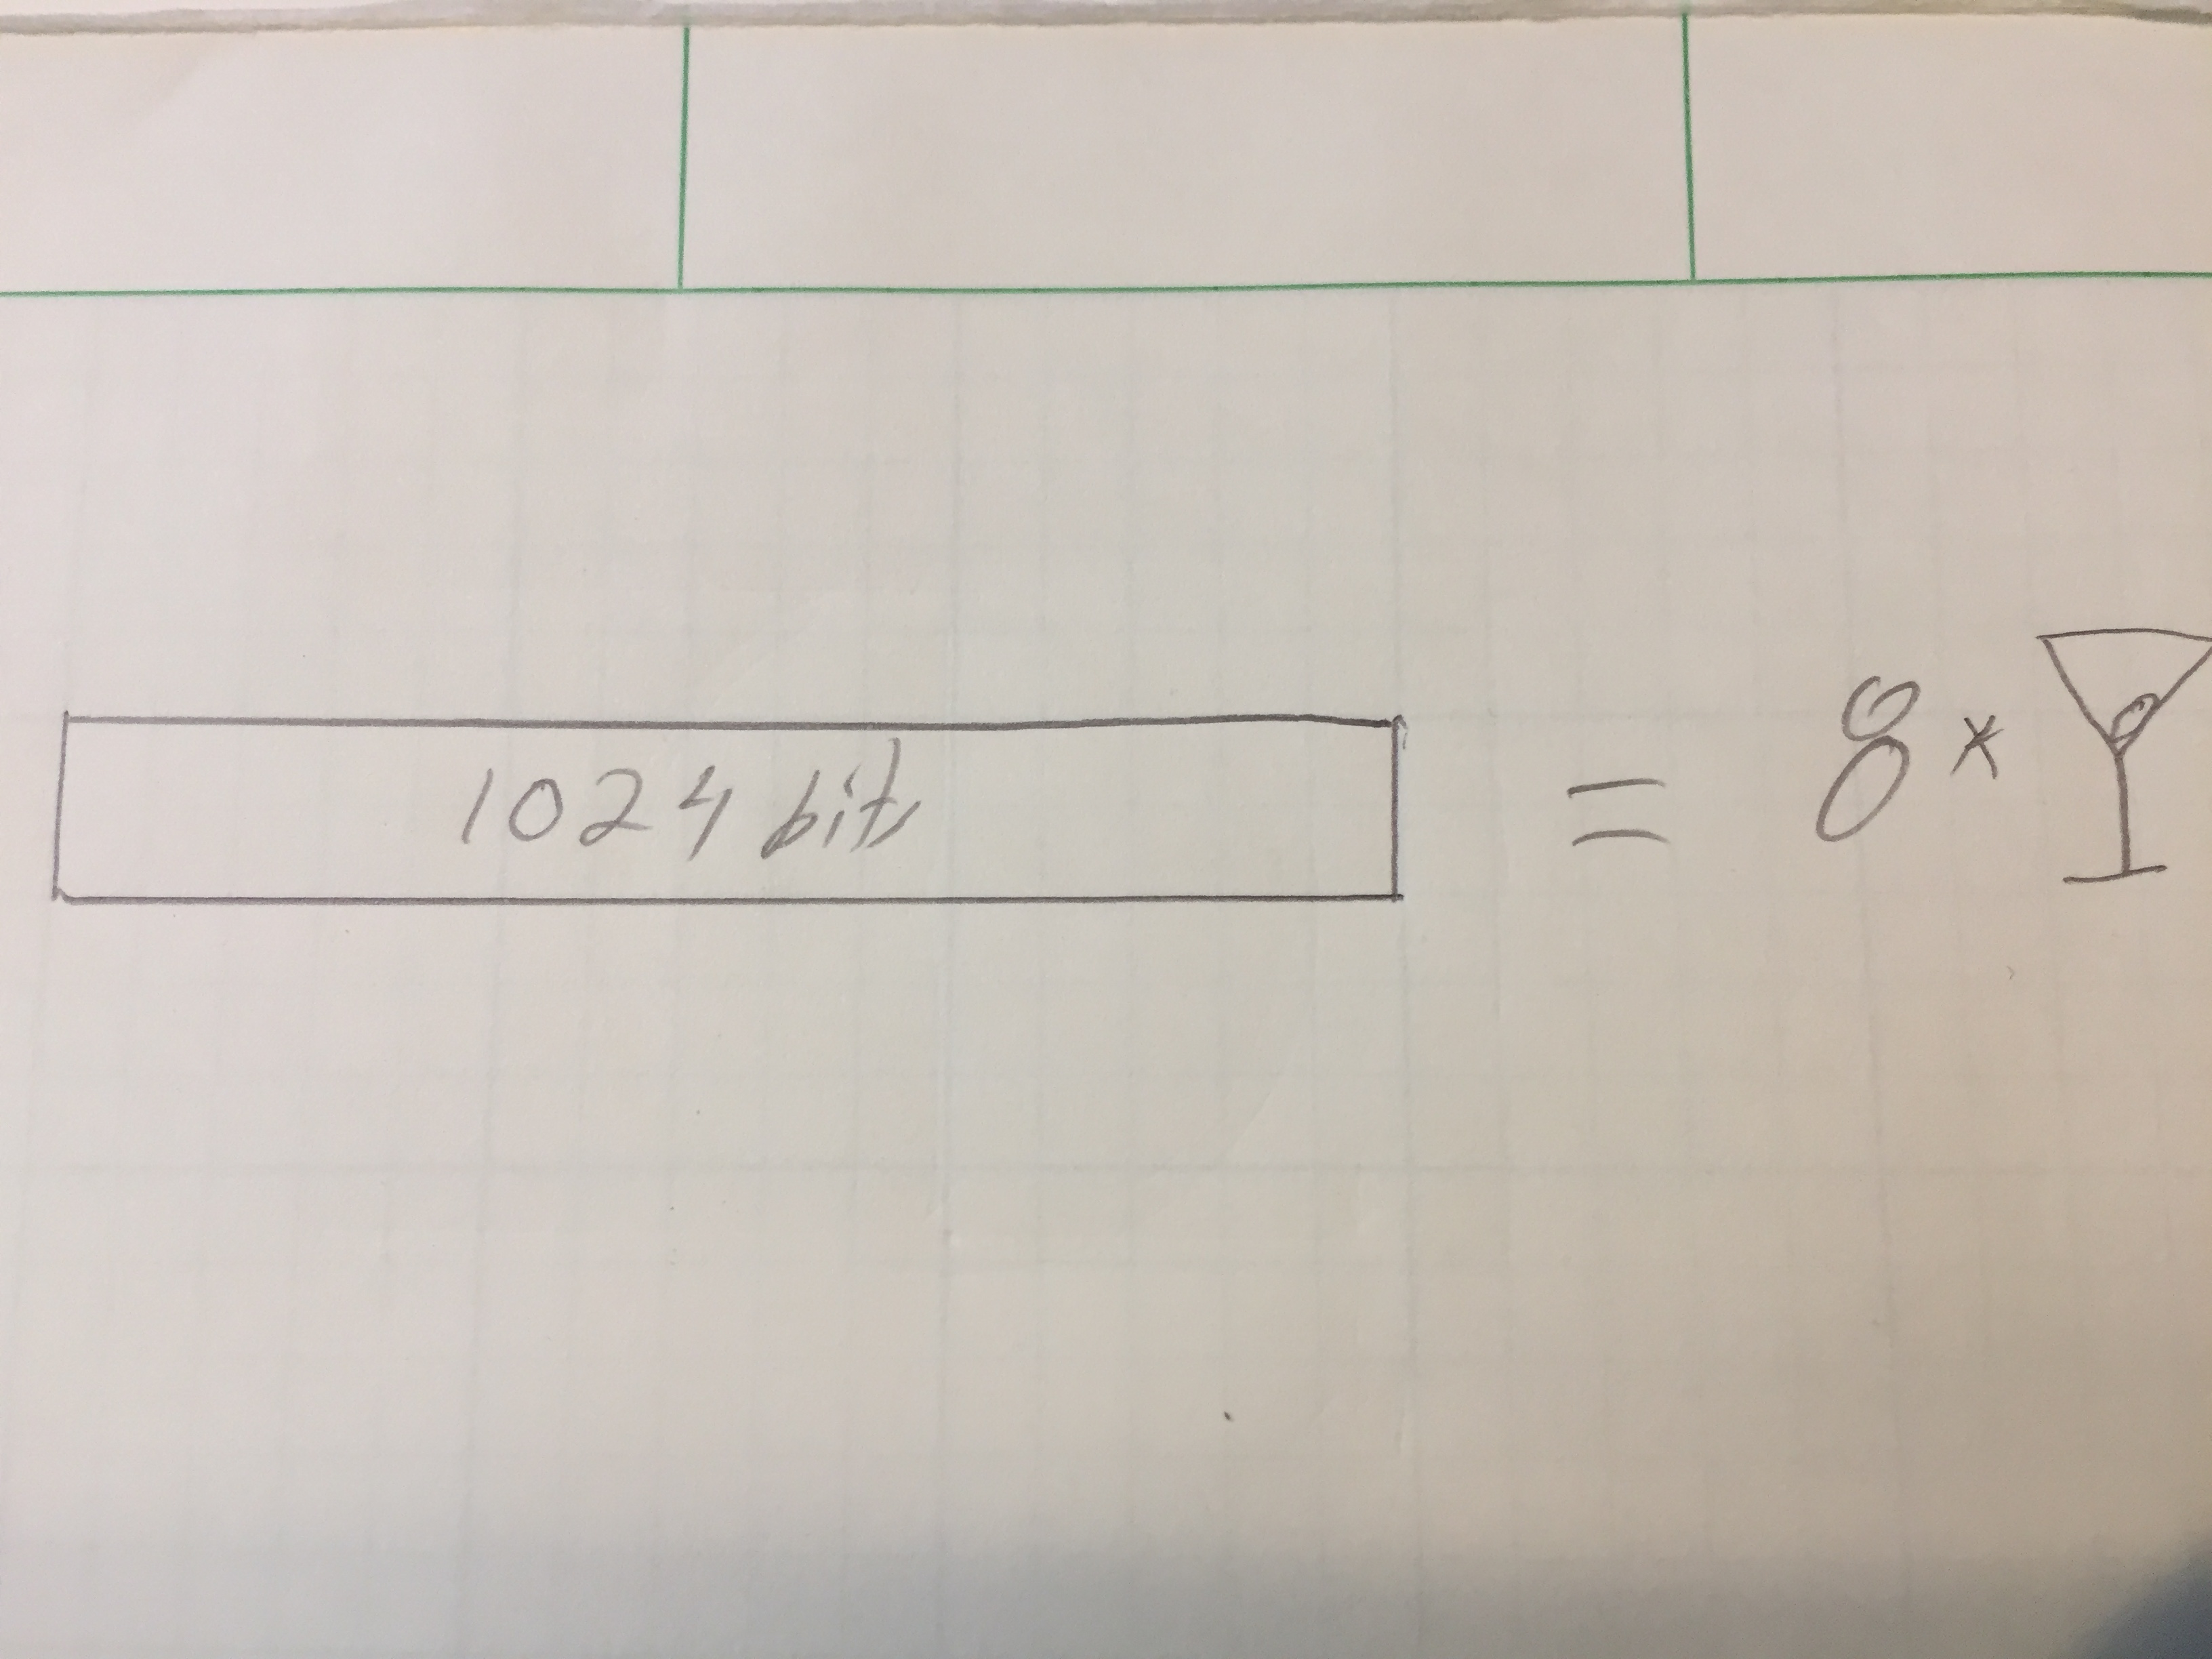 1024 bits = 8 *